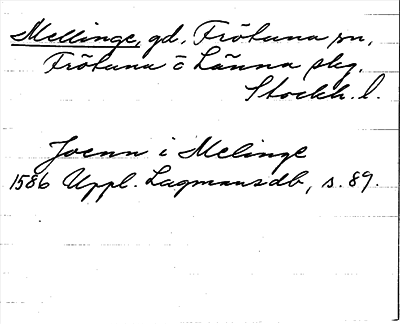 Mellinge, gd, Frötuna sn,
Frötuna o Länna skg.
Stockh. l.
Joenn i Melinge
1586 Uppl. Lagmansdb, s. 89.